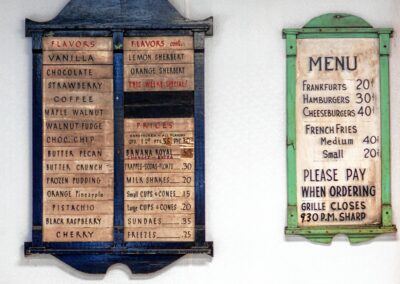 FLAVORS
VANILLA
CHOCOLATE
STRAWBERRY
COFFEE
MAPLE WALNUT
WALNUT FUDGE
CHOC. CHIP
BUTTER PECAN
BUTTER CRUNCH
FROZEN PUDDING
ORANGE Pineapple
PISTACHIO
BLACK RASPBERRY
CHERRY
FLAVORS cont.
LEMON SHERBERT
ORANGE SHERBERT
THIS WEEKS SPECIAL!
PRICES
BANANA ROYAL
MILK SHAKES .20
Small CUPS & CONES .15
Large CUPS & CONES .20
SUNDAES .35
FREEZES .25
MENU
FRANKFURTS 20¢
HAMBURGERS 30¢
CHEESEBURGERS 40¢
FRENCH FRIES
Medium 40¢
Small 20¢
PLEASE PAY
WHEN ORDERING
GRILLE CLOSES
9:30 P.M. SHARP